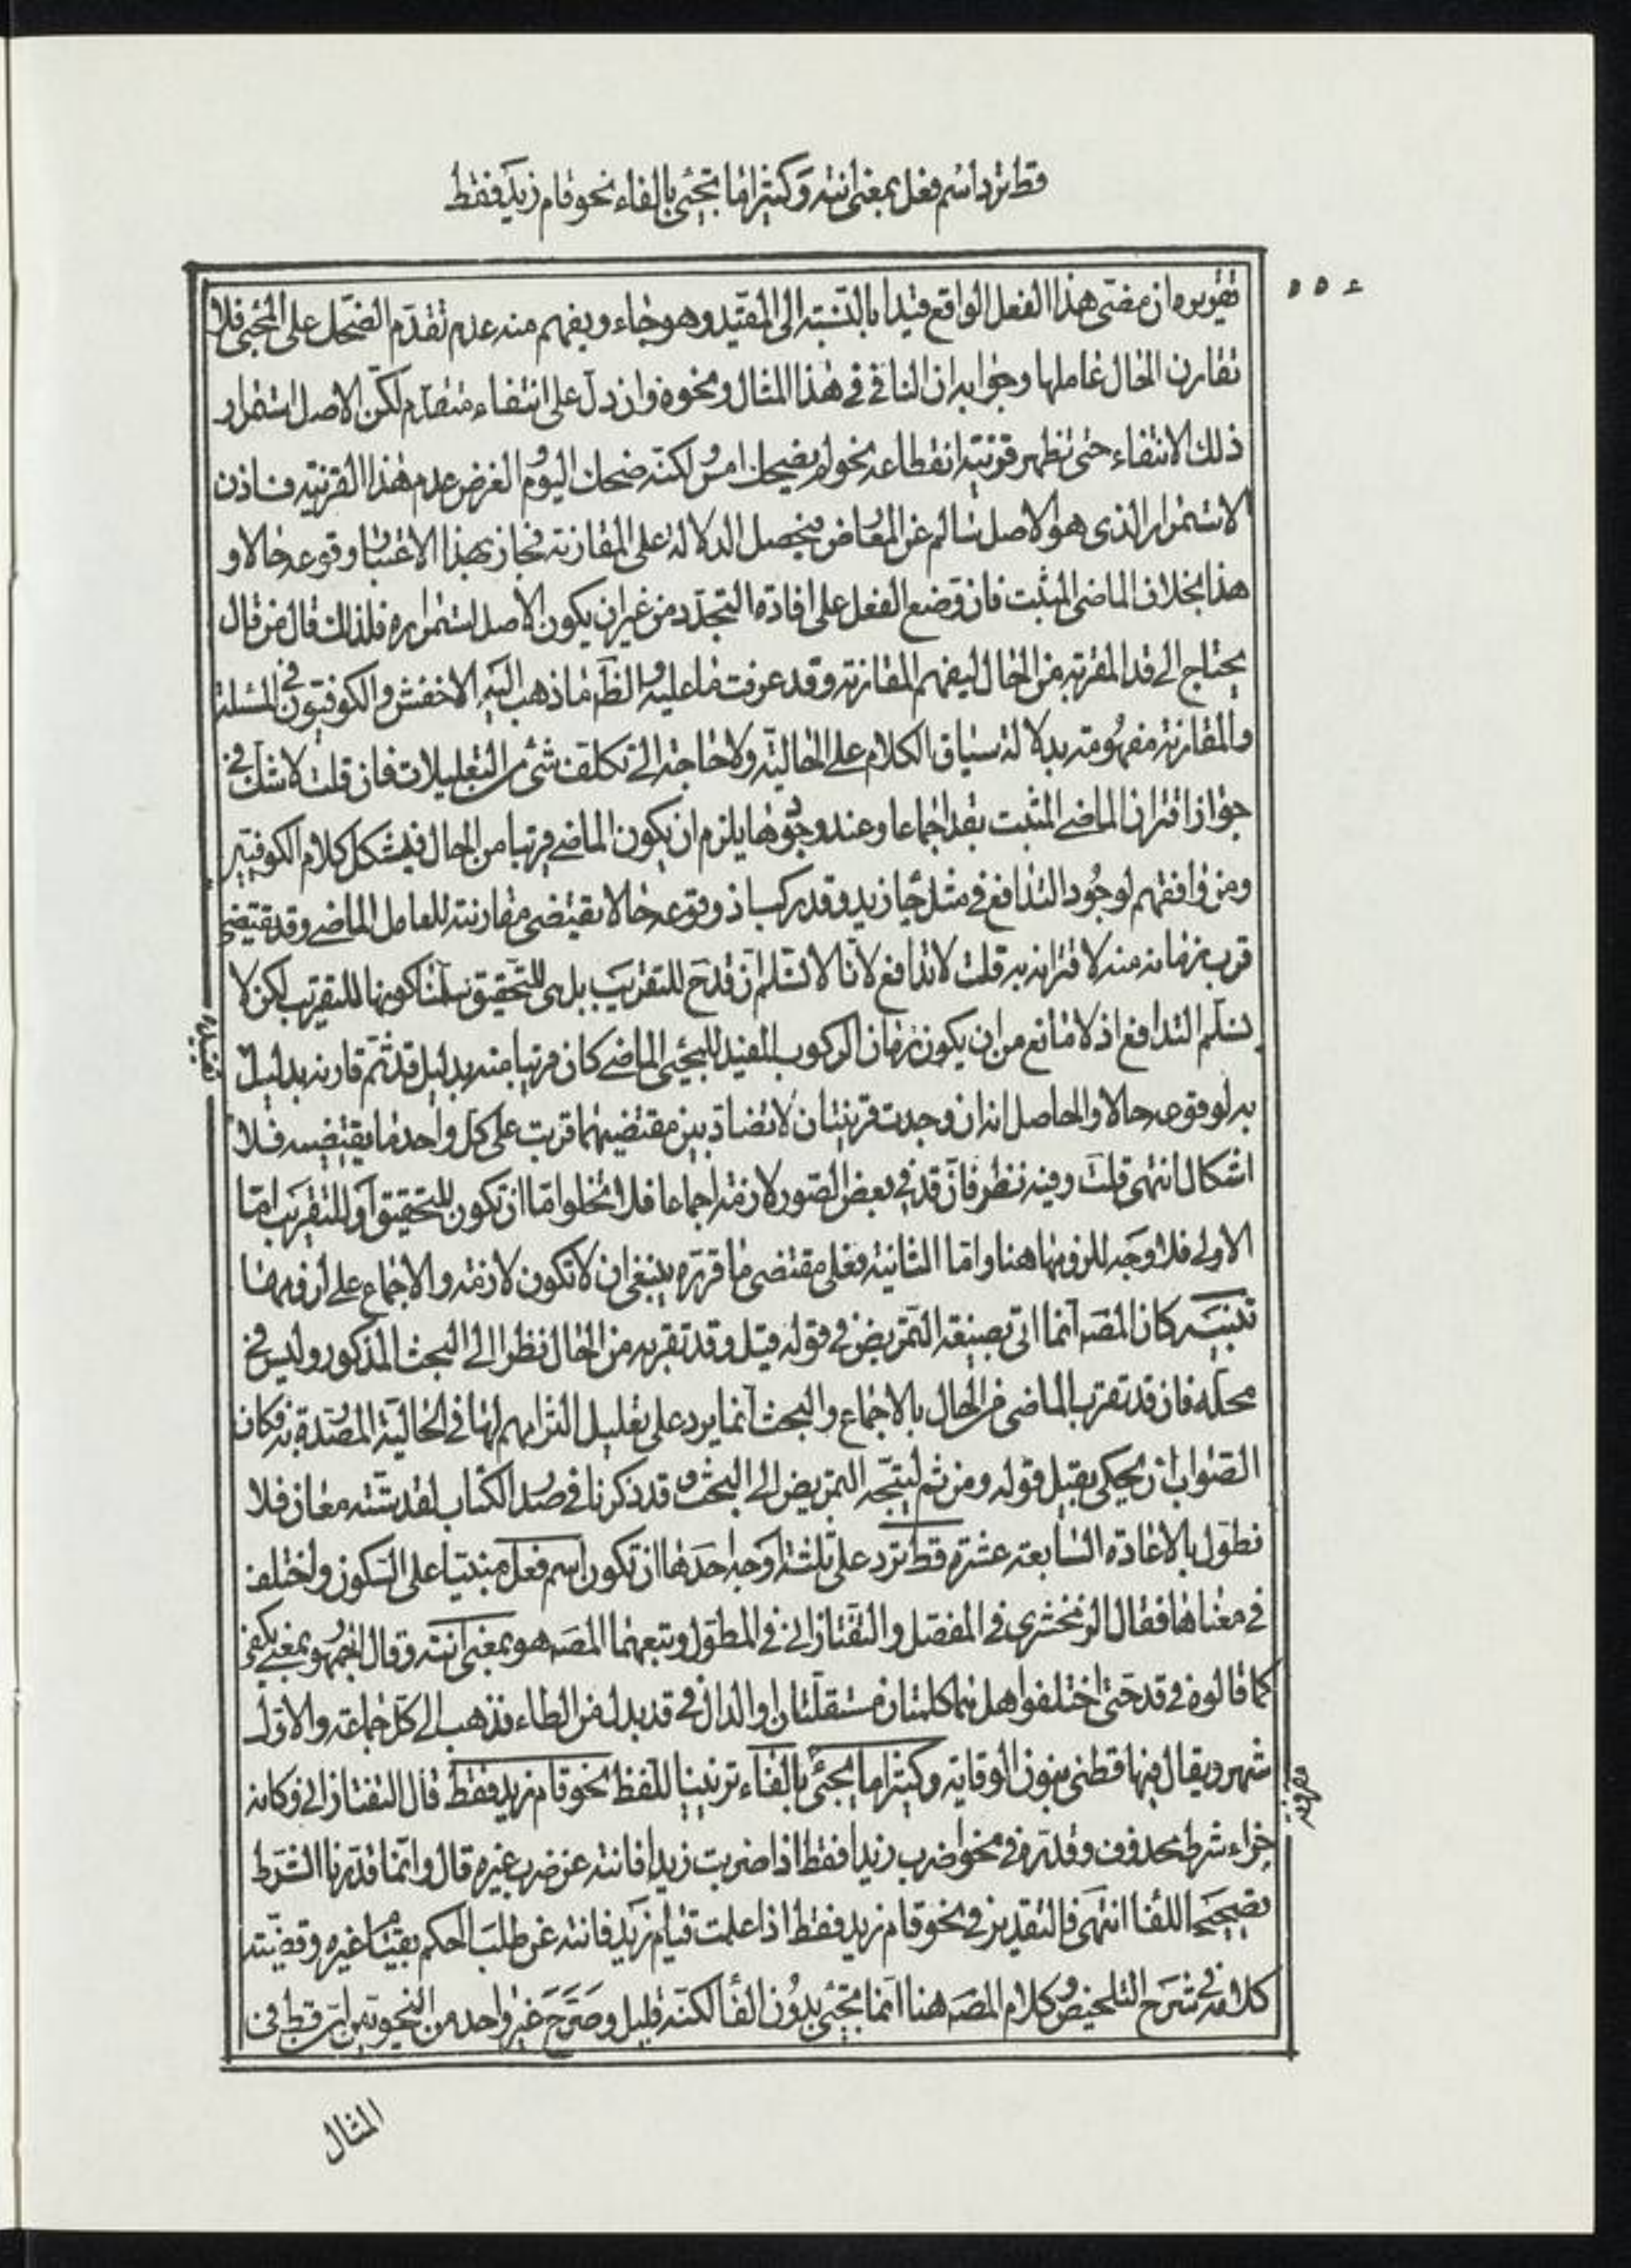 قط ترد اسم فعل بمعنى انته وكثيرا ما تجئ بالفاء نحو قام زيد فقط
٥٥٤
تقريره ان مضى هذا الفعل الواقع قيدا بالنسبة الى المقيد وهو جاء ويفهم منه عدم تقدم الضحك على المجئ فلا
تقارن الحال عاملها وجوابه ان النافى فى هذا المثال ونحوه وان دل على انتفاء متقدم لكن الاصل استمرار
ذلك الانتفاء حتى تظهر قرينة انقطاعه نحو لم يضحك امس لكنه ضحك اليوم والغرض عدم هذا القرينة فاذن
الاستمرار الذى هو الاصل سالم عن المعارض فيحصل الدلالة على المقارنة فجاز بهذا الاعتبار وقوعه حالا و
هذا بخلاف الماضى المثبت فان وضع الفعل على افادة التجدد من غير ان يكون الاصل استمراره فلذلك قال من قال
يحتاج الى قد المقربة من الحال ليفهم المقارنة وقد عرفت ما عليه والظ ما ذهب اليه الاخفش والكوفيون فى المسئلة
والمقارنة مفهومة بدلالة سياق الكلام على الحالية ولا حاجة الى تكلف شئ من التعليلات فان قلت لا شك فى
جواز اقتران الماضى المثبت بقد اجماعا وعند وجودها يلزم ان يكون الماضى قريبا من الحال فيشكل كلام الكوفيين
ومن وافقهم لوجود التدافع فى مثل جاء زيد وقد ركب اذ وقوعه حالا يقتضى مقارنته للعامل الماضى وقد يقتضى
قرب زمانه منه لاقترانه به قلت لا تدافع لانا لا نسلم ان قد ح للتقريب بل هى للتحقيق سلمنا كونها للتقريب لكن لا
نسلم التدافع اذ لا مانع من ان يكون زمان الركوب المفيد للمجئ الماضى كان قريبا منه بدليل قد ثم قارنه بدليل
به لو وقوعه حالا والحاصل انه ان وجدت قرينتان لا تضاد بين مقتضيهما قربت على كل واحد ما يقتضيه فلا
اشكال انتهى قلت وفيه نظر فان قد فى بعض الصور لازمة اجماعا فلا تخلوا اما ان تكون للتحقيق او للتقريب اما
الاولى فلا وجه للزومها هنا واما الثانية فعلى مقتضى ما قرره ينبغى ان لا تكون لازمة والاجماع على لزومها
تنبيه كان المصه انما اتى بصيغة التمريض فى قوله قيل وقد تقربه من الحال نظرا الى البحث المذكور وليس فى
محله فان قد تقرب الماضى من الحال بالاجماع والبحث انما يرد على تعليل التزامهم لها فى الحالية المصدرة به فكان
الصواب ان يحكى بقيل قوله ومن ثم ليتجه التمريض الى البحث وقد ذكرنا فى صدر الكتاب لقد ستة معان فلا
نطول بالاعادة السابعة عشرة قط ترد على ثلثة اوجه احدها ان تكون اسم فعل مبنيا على السكون واختلف
فى معناها فقال الزمخشرى فى المفصل والتفتازانى فى المطول وتبعهما المصه هو بمعنى انته وقال الجمهور بمعنى يكفى
كما قالوه فى قد حتى اختلفوا هل هما كلمتان مستقلتان او الدال فى قد بدل من الطاء فذهب الى كل جماعة والاول
اشهر ويقال فيها قطنى بنون الوقاية وكثيرا ما يجئ بالفاء تزيينا للفظ نحو قام زيد فقط قال التفتازانى وكانه
جزاء شرط محذوف وقدره فى نحو اضرب زيدا فقط اذا ضربت زيدا فانته عن ضرب غيره قال وانما قدرنا الشرط
تصحيحا للفا انتهى فالتقدير فى نحو قام زيد فقط اذا علمت قيام زيد فانته عن طلب الحكم بقيام غيره وقضية
كلامه فى شرح التلخيص وكلام المصه هنا انما تجئ بدون الفأ لكنه قليل وصرح غير واحد من النحويين بان قط فى
المثال